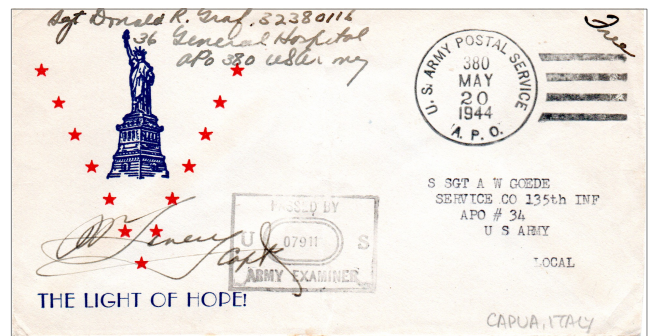 Sgt Donald R. Graf, 32380116
36 General Hospital
APO 380 US Army
Free
U. S. ARMY POSTAL SERVICE
380
MAY
20
1944
A. P. O.
S SGT A W GOEDE
SERVICE CO 135th INF
APO # 34
U S ARMY
LOCAL
PASSED BY
U 07911 S
ARMY EXAMINER
Capt
THE LIGHT OF HOPE!
CAPUA, ITALY